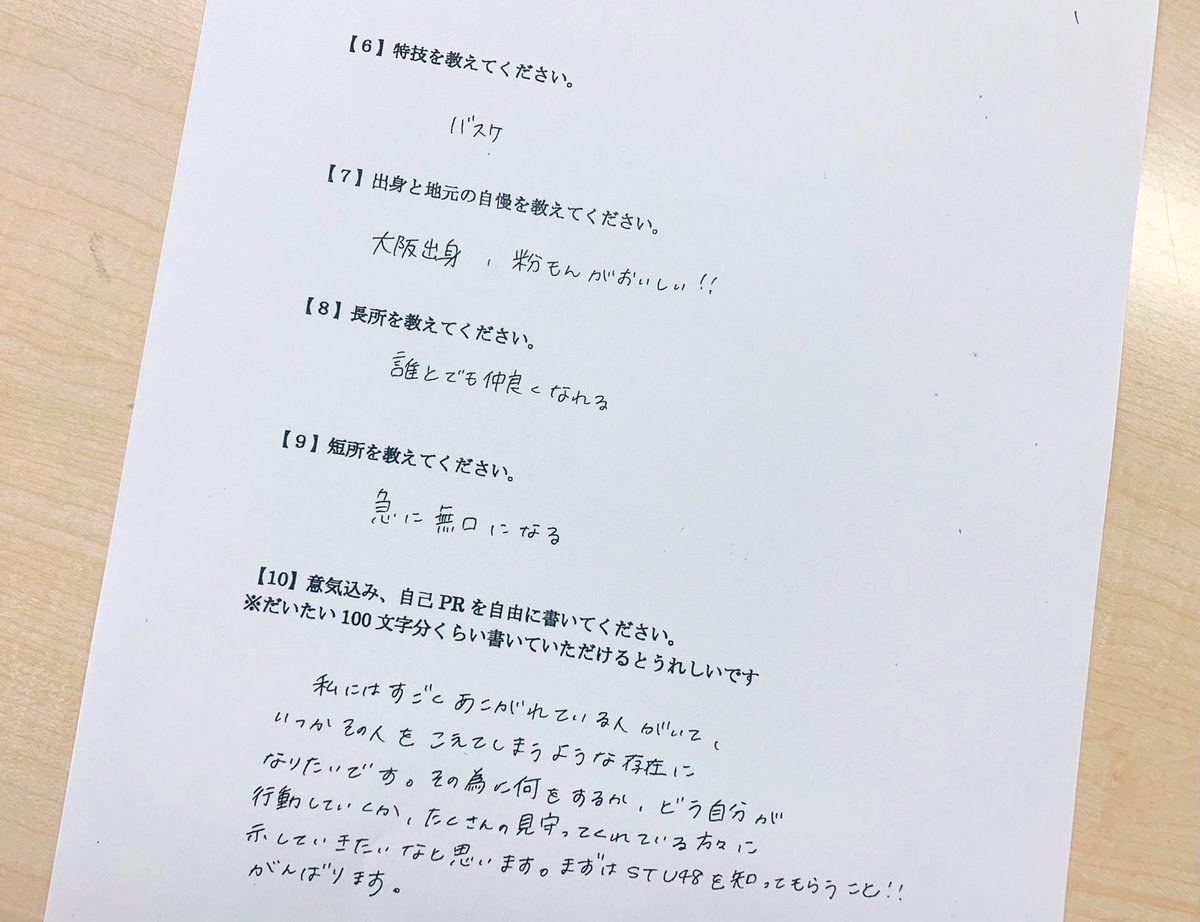 【6】特技を教えてください。
バスケ
【7】出身と地元の自慢を教えてください。
大阪出身、粉もんがおいしい!!
【8】長所を教えてください。
誰とでも仲良くなれる
【9】短所を教えてください。
急に無口になる
【10】意気込み、自己PRを自由に書いてください。
※だいたい100文字分くらい書いていただけるとうれしいです
私にはすごくあこがれている人がいて、
いつかその人をこえてしまうような存在に
なりたいです。その為に何をするか、どう自分が
行動していくか、たくさんの見守ってくれている方々に
示していきたいなと思います。まずはSTU48を知ってもらうこと!!
がんばります。